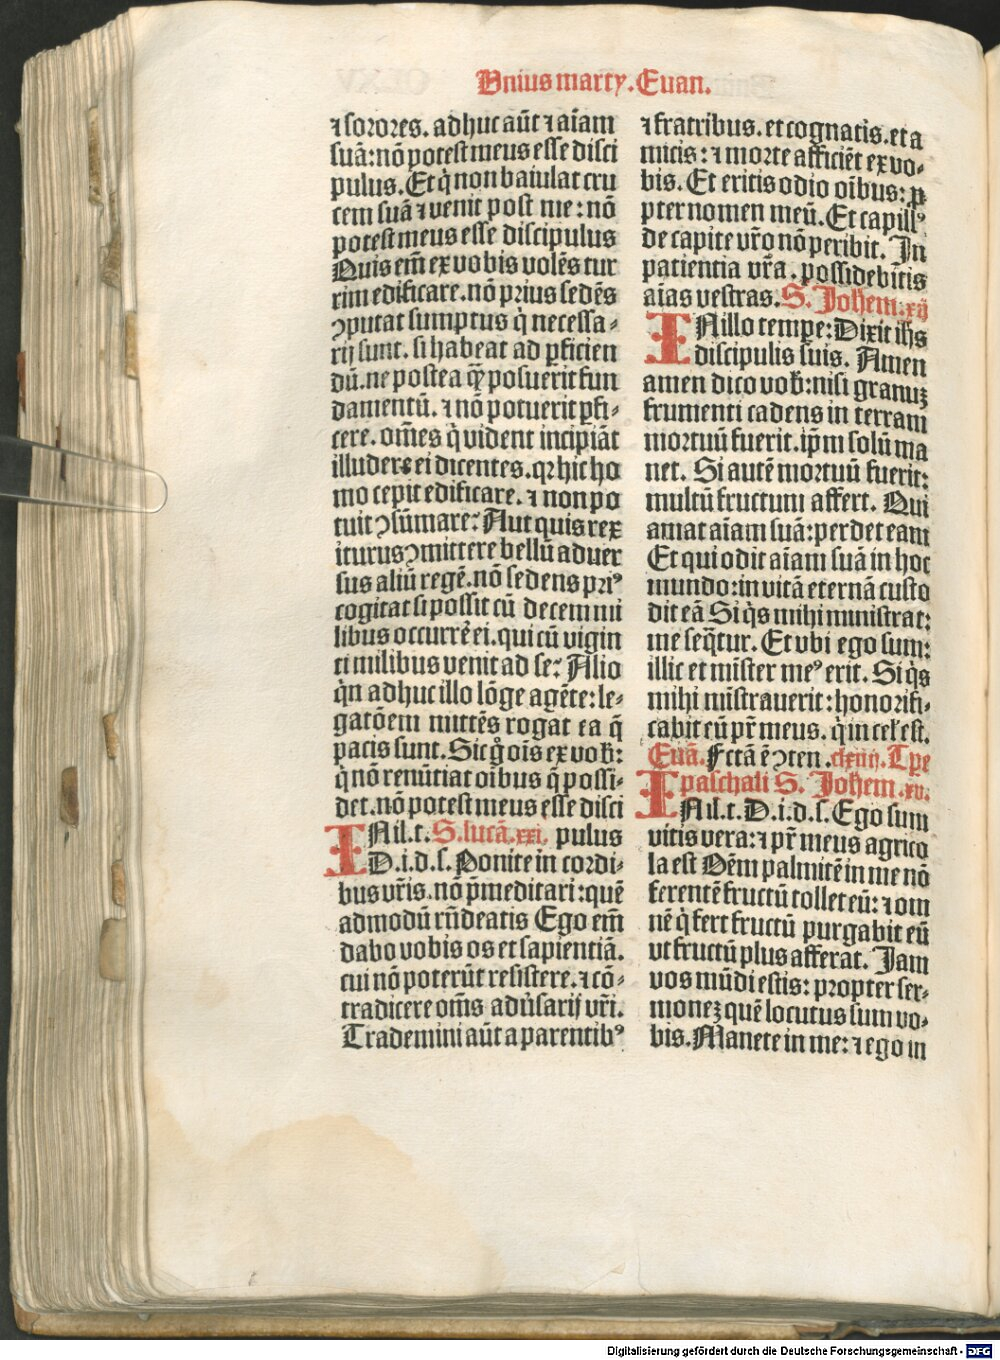 Vnius marty. Euan.
⁊ sorores. adhuc aūt ⁊ aīam
suā: nō potest meus esse disci
pulus. Et q̇ non baiulat cru
cem suā ⁊ venit post me: nō
potest meus esse discipulus
Quis em̄ ex vobis volēs tur
rim edificare. nō prius sedēs
ꝯputat sumptus q̇ necessa⸗
rij sunt. si habeat ad ꝑficien
dū. ne postea qꝫ posuerit fun
damentū. ⁊ nō potuerit ꝑfi⸗
cere. om̄es q̇ vident incipiāt
illudere ei dicentes. qꝛ hic ho
mo cepit edificare. ⁊ non po
tuit ꝯsūmare? Aut quis rex
iturus ꝯmittere bellū aduer
sus aliū regē. nō sedens priꝰ
cogitat si possit cū decem mi
libus occurrē ei. qui cū vigin
ti milibus venit ad se? Alio
q̇n adhuc illo lōge agēte: le⸗
gatōem mittēs rogat ea q̄
pacis sunt. Sic g̊ oīs ex vob̄:
q̇ nō renūtiat oībus q̄ possi⸗
det. nō potest meus esse disci
IN il. t. S. lucā. xxi. pulus
D. i. d. s. Ponite in cordi⸗
bus vr̄is. nō p̄meditari: quē
admodū rn̄deatis Ego em̄
dabo vobis os et sapientiā.
cui nō poterūt resistere. ⁊ cō⸗
tradicere om̄s adu̓sarij vr̄i.
Trademini aūt a parentibꝰ
⁊ fratribus. et cognatis. et a
micis: ⁊ morte afficiēt ex vo⸗
bis. Et eritis odio oībus: ꝓ
pter nomen meū. Et capillꝰ
de capite vr̄o nō peribit. In
patientia vr̄a. possidebītis
aīas vestras. S. Johem. xij
IN illo tempe: Dixit ih̄s
discipulis suis. Amen
amen dico vob̄: nisi granuꝫ
frumenti cadens in terram
mortuū fuerit. ip̄m solū ma
net. Si autē mortuū fuerit:
multū fructum affert. Qui
amat aīam suā: perdet eam
Et qui odit aīam suā in hoc
mundo: in vitā eternā custo
dit eā Si q̇s mihi ministrat:
me seq̄tur. Et vbi ego sum:
illic et mīster meꝰ erit. Si q̇s
mihi mīstrauerit: honorifi⸗
cabit eū pr̄ meus. q̇ in cel̄ est.
Euā. Fctā ē ꝯten. clxiiij. Tpe
paschali S. Johem. xv.
IN il. t. D. i. d. s. Ego sum
vitis vera: ⁊ pr̄ meus agrico
la est Oēm palmitē in me nō
ferentē fructū tollet eū: ⁊ om
nē q̇ fert fructū purgabit eū
vt fructū plus afferat. Jam
vos mūdi estis: propter ser⸗
moneꝫ quē locutus sum vo⸗
bis. Manete in me: ⁊ ego in
Digitalisierung gefördert durch die Deutsche Forschungsgemeinschaft - DFG